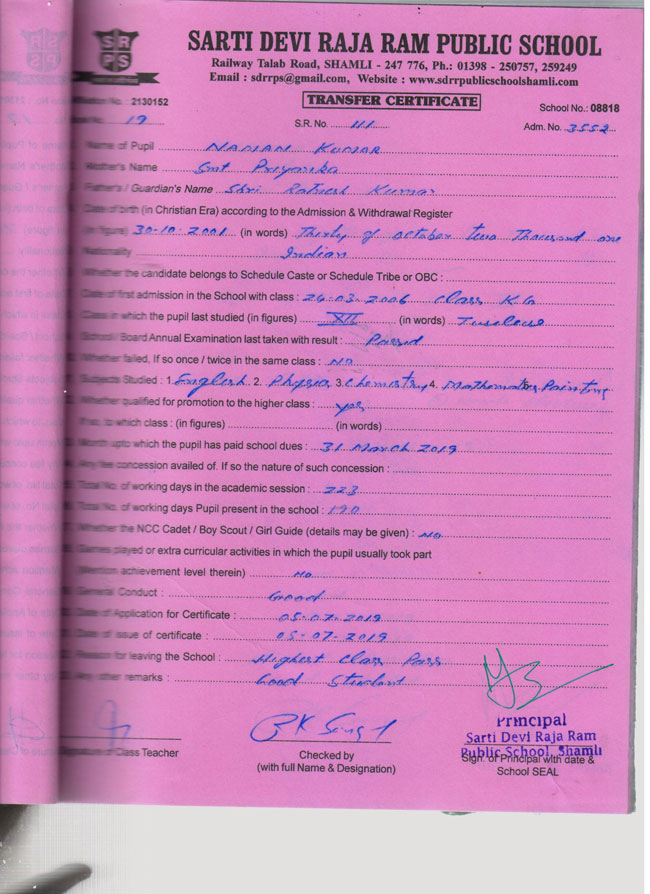 SRPS
SARTI DEVI RAJA RAM PUBLIC SCHOOL
Railway Talab Road, SHAMLI - 247 776, Ph.: 01398 - 250757, 259249
Email : sdrrps@gmail.com, Website : www.sdrrpublicschoolshamli.com
No. : 2130152
TRANSFER CERTIFICATE
School No.: 08818
No. 19
S.R. No. 111
Adm. No. 3552
Name of Pupil NAMAN KUMAR
Mother's Name Smt Priyanka
Father's / Guardian's Name Shri Kumar
Date of birth (in Christian Era) according to the Admission & Withdrawal Register
(in figure) 30-10-2001 (in words) Thirty of October two Thousand one
Nationality Indian
Whether the candidate belongs to Schedule Caste or Schedule Tribe or OBC :
Date of first admission in the School with class : 26-03-2006 Class K.G
Class in which the pupil last studied (in figures) XII (in words) Twelve
School / Board Annual Examination last taken with result : Passed
Whether failed, If so once / twice in the same class : NO
Subjects Studied : 1. English 2. Physics 3. Chemistry 4. Mathematics 5. Painting
Whether qualified for promotion to the higher class : yes
If so, to which class : (in figures) (in words)
Month upto which the pupil has paid school dues : 31 March 2019
Any fee concession availed of. If so the nature of such concession :
Total No. of working days in the academic session : 223
Total No. of working days Pupil present in the school : 190
Whether the NCC Cadet / Boy Scout / Girl Guide (details may be given) : NO
Games played or extra curricular activities in which the pupil usually took part
(Mention achievement level therein) No
General Conduct : Good
Date of Application for Certificate : 05-07-2019
Date of issue of certificate : 05-07-2019
Reason for leaving the School : Highest Class Pass
Any other remarks : Good Student
Principal
Sarti Devi Raja Ram
Public School, Shamli
Signature of Class Teacher
Checked by
(with full Name & Designation)
Sign. of Principal with date &
School SEAL